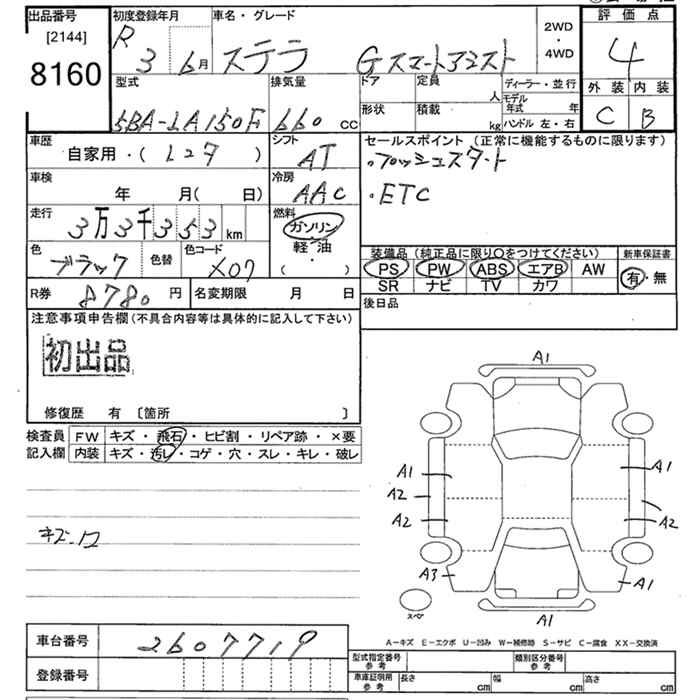 出品番号
[2144]
8160
初度登録年月
R 3 6月
車名・グレード
ステラ Gスマートアシスト
2WD
・
4WD
評価点
4
外装 内装
C B
型式
5BA-LA150F
排気量
660 cc
ドア
定員
人
形状
積載
kg
ディーラー・並行
モデル年式 年
ハンドル 左・右
車歴
自家用・( レンタ )
シフト
AT
セールスポイント (正常に機能するものに限ります)
・プッシュスタート
・ETC
車検
年 月( 日)
冷房
AAC
走行
3万3千353km
燃料
ガソリン
軽・油
・( )
色
ブラック
色替
色コード
X07
装備品 (純正品に限り○をつけてください)
PS PW ABS エアB AW
SR ナビ TV カワ
新車保証書
有・無
R券
8780 円
名変期限 月 日
後日品
注意事項申告欄 (不具合内容等は具体的に記入して下さい)
初出品
修復歴 有 〔箇所 〕
検査員記入欄
FW キズ・飛石・ヒビ割・リペア跡・×要
内装 キズ・汚レ・コゲ・穴・スレ・キレ・破レ
A1
A1 A1
A2 A2
A2
A3 A1
A1
スペア
A-キズ E-エクボ U-凹み W-補修跡 S-サビ C-腐食 XX-交換済
車台番号
2607719
登録番号
型式指定番号 参考
類別区分番号 参考
車庫証明用 参考
長さ cm
幅 cm
高さ cm